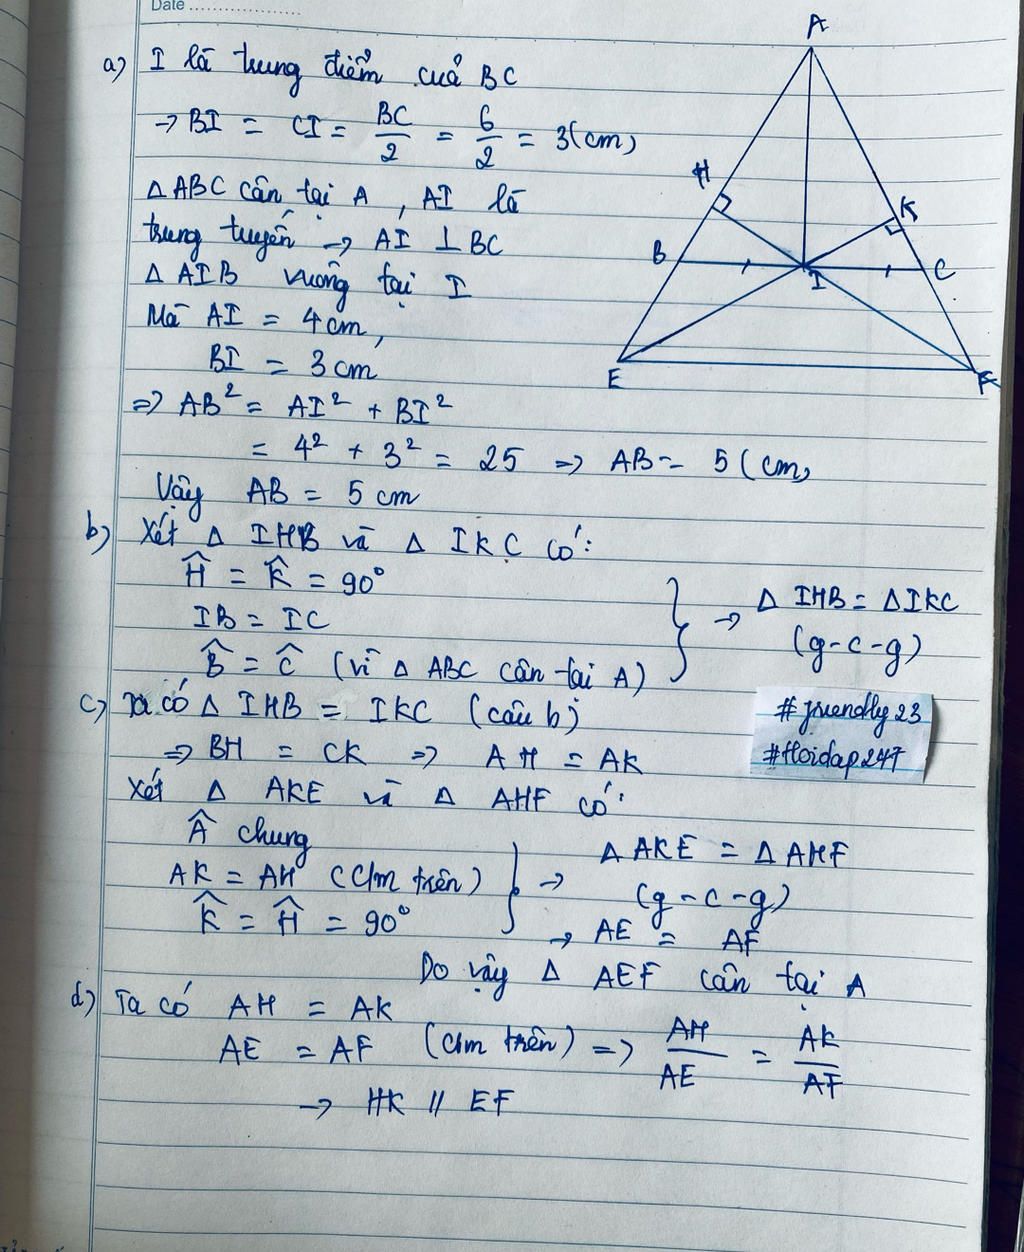 Date
a) I là trung điểm của BC
→ BI = CI = BC/2 = 6/2 = 3(cm)
Δ ABC cân tại A , AI là
trung tuyến → AI ⊥ BC
Δ AIB vuông tại I
Mà AI = 4 cm,
BI = 3 cm
⇒ AB² = AI² + BI²
= 4² + 3² = 25 ⇒ AB = 5 (cm)
Vậy AB = 5 cm
A
H
K
B
I
C
E
F
b) Xét Δ IHB và Δ IKC có:
Ĥ = K̂ = 90°
IB = IC
B̂ = Ĉ (vì Δ ABC cân tại A)
→ Δ IHB = Δ IKC
(g-c-g)
c) Ta có Δ IHB = IKC (câu b)
⇒ BH = CK ⇒ AH = AK
#friendly23
#Hoidap247
Xét Δ AKE và Δ AHF có:
Â chung
AK = AH (c/m trên)
K̂ = Ĥ = 90°
→ Δ AKE = Δ AHF
(g-c-g)
→ AE = AF
Do vậy Δ AEF cân tại A
d) Ta có AH = AK
AE = AF (c/m trên) ⇒ AH/AE = AK/AF
→ HK // EF